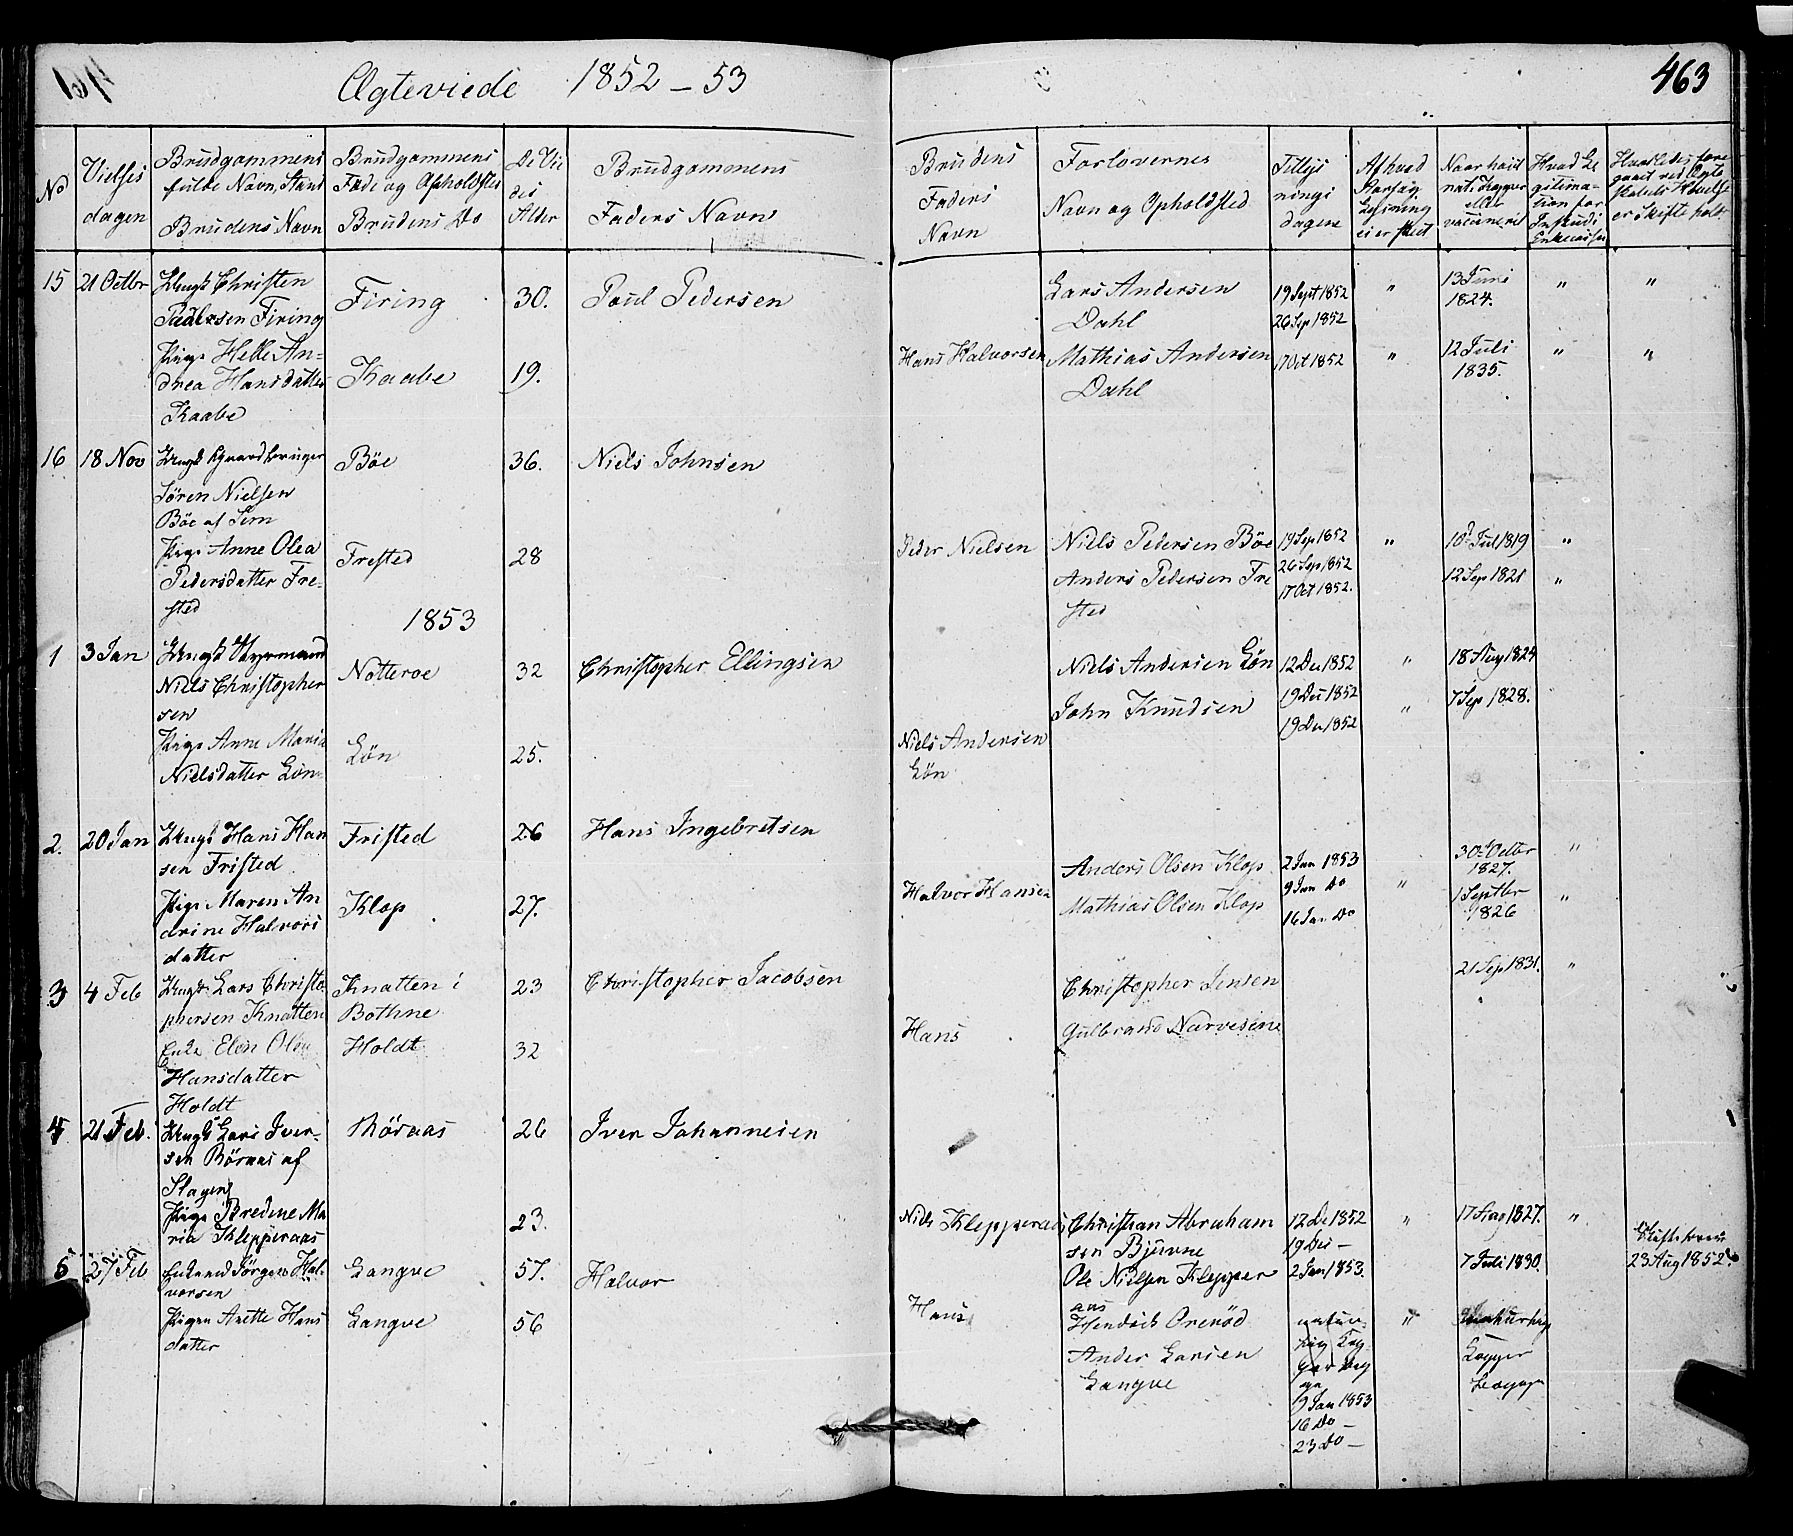 Ægteviede 1852 – 53
463
No
Vielses
dagen
Brudgommens
fulde Navn, Stand
Brudens Navn
Brudgommens
Føde og Opholdsted
Brudens Do
De Vie
des
Alder
Brudgommens
Faders Navn
Brudens
Faders
Navn
Forlovernes
Navn og Opholdsted
Tillys
nings
dagene
Af hvad
Aarsag
Lysning
ei er skeet
Naar havt
nat. Kopper
eller
vaccineret
Hvad Le
gitima-
tion for
Indskud i
Enkecassen
Hvorledes fore
gaaet ved Ægte
skabets
er Skifte holdt
15 21 Octbr
Ungk Christen
Paulsen Firing
Firing
30.
Poul Pedersen
Lars Andersen
Dahl
19 Sept 1852
26 Sep 1852
"
13 Juni
1824.
"
"
Pige Helle An-
drea Hansdatter
Raabe
Raabe
19.
Hans Halvorsen
Mathias Andersen
Dahl
17 Oct 1852
"
12 Juli
1835.
"
"
16 18 Nov
Ungk
Sören Nielsen
Böe af Sem
Böe
36.
Niels Johnsen
Pige Anne Olea
Pedersdatter Fre-
sted
Frested
28
Peder Nielsen
Niels Pedersen Böe
Anders Pedersen Fre
sted
19 Sep 1852
26 Sep 1852
17 Oct 1852.
"
10 Jul 1819
12 Sep 1821
"
"
1853
1 3 Jan
Ungk Styrmand
Niels Christopher
sen
Nötteroe
32
Christopher Ellingsen
Niels Andersen Lön
John Knudsen
12 Dec 1852
19 Dec 1852
19 Dec 1852
"
"
18 Aug 1824
7 Sep 1828.
Pige Anne Maria
Nielsdatter Lön
Lön
25.
Niels Andersen
Lön
2. 20 Jan
Ungk Hans Han
sen Fristed
Fristed
26
Hans Ingebretsen
Anders Olsen Klop
Mathias Olsen Klop
2 Jan 1853
9 Jan Do
16 Jan Do
"
30 Octbr
1827.
1 Septbr
1826
"
"
Pige Maren An
drine Halvors
datter
Klop
27.
Halvor Hansen
3 4 Feb
Ungk Lars Christo
phersen Knatten
Knatten i
Bothne
23
Christopher Jacobsen
Christopher Jensen
Gulbrand Narvesen
21 Sep 1831.
"
Enke Elen Olea
Hansdatter
Holdt
Holdt
32
Hans
4 21 Feb.
Ungk Lars Iver-
sen Röraas af
Slagen
Röraas
26
Iver Johannesen
Pige Bredine Ma
ria Klepperaas
23.
Niels Klepperaas
Christian Abraham
sen Bjuvne
Ole Nielsen Klepper
aas
12 De 1852
19 Dec –
2 Jan 1853.
"
17 Aug 1827.
7 Juli 1830.
"
23 Aug 1852.
5 27 Feb
Enkemd Jörgen Hal-
vorsen
Langve
57.
Halvor
Pigen Anette Hans
datter
Langve
56
Hans
Hendrik Orenöd
Anders Larsen
Langve
"
9 Jan 1853
16 Do –
23 Do –